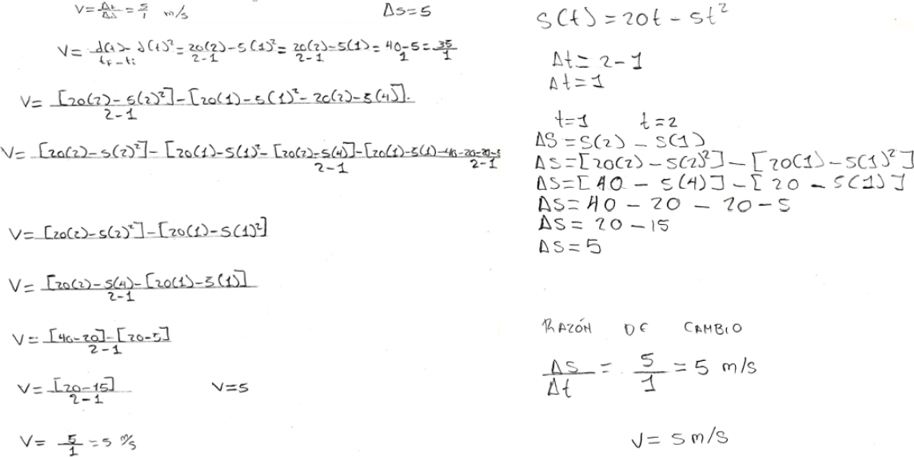 V= Δs/Δt = 5/1 m/s Δs=5
V= 20(2)-5(1)²/2-1 = 20(2)-5(1)/2-1 = 40-5/1 = 35/1
V= [20(2)-5(2)²]-[20(1)-5(1)²-20(2)-5(4)]./2-1
V= [20(2)-5(2)²]-[20(1)-5(1)²-[20(2)-5(4)]-[20(1)-5(1)/2-1
V= [20(2)-5(2)²]-[20(1)-5(1)²]
V= [20(2)-5(4)-[20(1)-5(1)]/2-1
V= [40-20]-[20-5]/2-1
V= [20-15]/2-1 V=5
V= 5/1 = 5 m/s
S(t)=20t-5t²
Δt=2-1
Δt=1
t=1 t=2
ΔS=S(2)-S(1)
ΔS=[20(2)-5(2)²]-[20(1)-5(1)²]
ΔS=[40-5(4)]-[20-5(1)]
ΔS=40-20-20-5
ΔS=20-15
ΔS=5
RAZÓN DE CAMBIO
ΔS/Δt = 5/1 = 5 m/s
V=5m/s